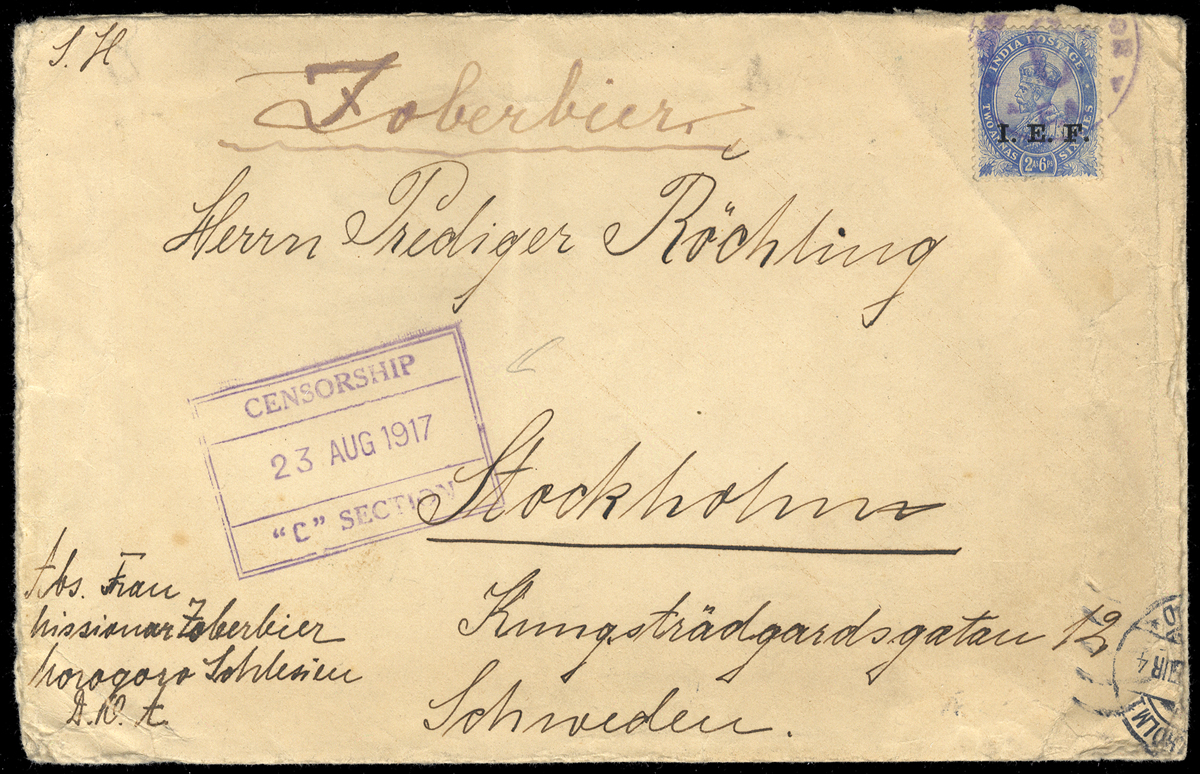 S. H
Zoberbier
INDIA POSTAGE
I. E. F.
TWO ANNAS SIX PIES
2As 6Ps
Herrn Prediger Röchling
CENSORSHIP
23 AUG 1917
"C" SECTION
Stockholm
Kungsträdgardsgatan 12
Schweden.
Abs. Frau
Missionar Zoberbier
Morogoro Schlesien
D. O. A.